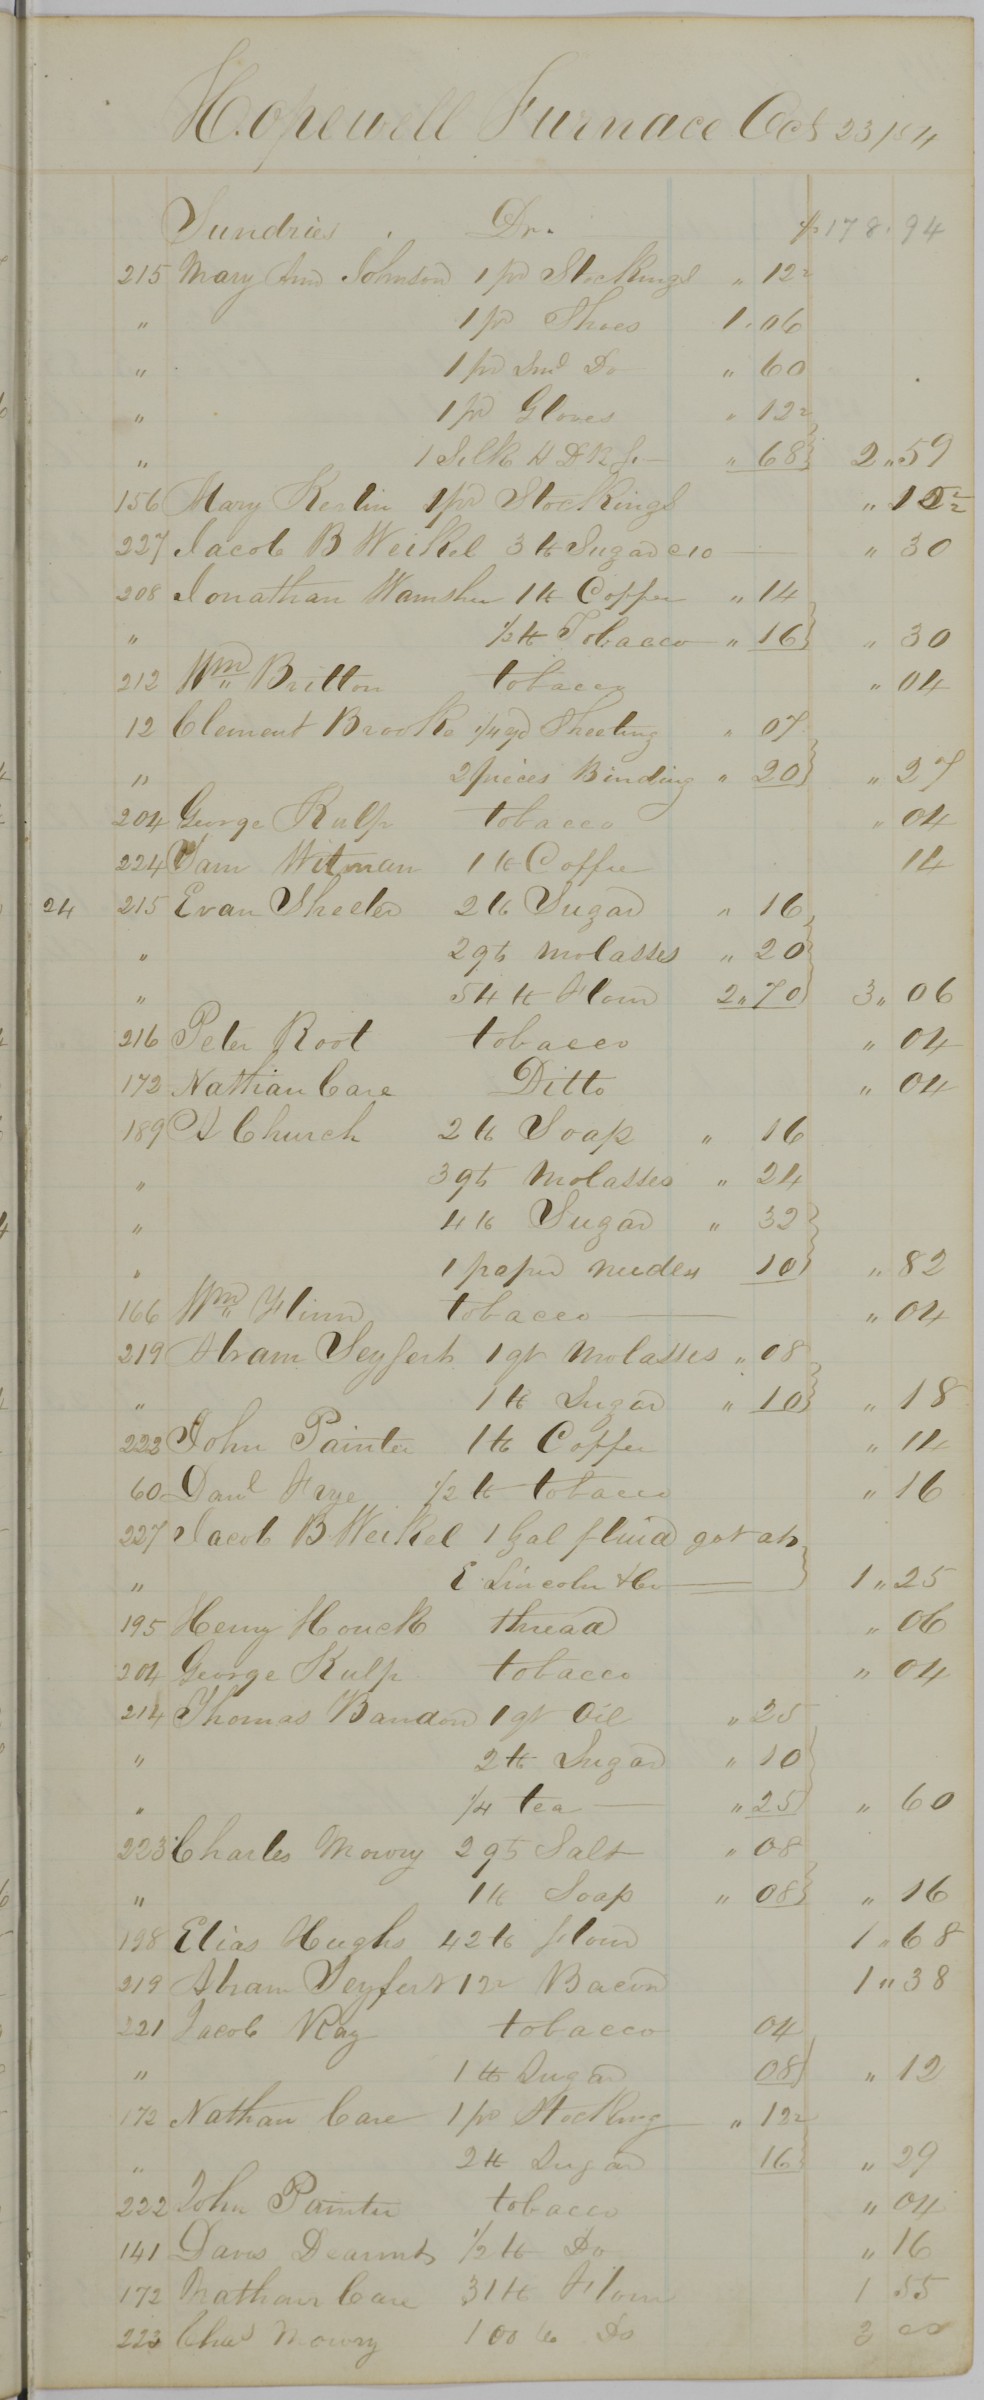 Hopewell Furnace Oct 23 184
Sundries . Dr. $178.94
215 Mary Ann Johnson 1 pr Stockings " 12½
" 1 pr Shoes 1.06
" 1 pr Do " 60
" 1 pr Gloves " 12½
" 1 Silk H D K f " 68 2 " 59
156 Mary Kerlin 1 pr Stockings " 12½
227 Jacob B Weikel 3 lb Sugar @10 " 30
208 Jonathan Wamsher 1 lb Coffee " 14
" ½ lb Tobacco " 16 " 30
212 Wm Britton tobacco " 04
12 Clement Brooke ¼ yd Sheeting " 07
" 2 pieces Binding " 20 " 27
204 George Kulp tobacco " 04
224 Sam Witman 1 lb Coffee 14
24 215 Evan Sheeler 2 lb Sugar " 16
" 2 qts molasses " 20
" 54 lb Flour 2 " 70 3 " 06
216 Peter Root tobacco " 04
172 Nathan Care Ditto " 04
189 A Church 2 lb Soap " 16
" 3 qts Molasses " 24
" 4 lb Sugar " 32
" 1 paper needles 10 " 82
166 Wm Flinn tobacco " 04
219 Abram Seyfert 1 qt Molasses " 08
" 1 lb Sugar " 10 " 18
222 John Painter 1 lb Coffee " 14
60 Danl Frye ½ lb tobacco " 16
227 Jacob B Weikel 1 Gal fluid got at
" E Lincoln & Co 1 " 25
195 Henry Houck thread " 06
204 George Kulp tobacco " 04
214 Thomas Bandon 1 qt Oil " 25
" 2 lb Sugar " 10
" ¼ tea " 25 " 60
223 Charles Mowry 2 qts Salt " 08
" 1 lb Soap " 08 " 16
198 Elias Hughs 42 lb flour 1 " 68
219 Abram Seyfert 12 Bacon 1 " 38
221 Jacob Kay tobacco 04
" 1 lb Sugar 08 " 12
172 Nathan Care 1 pr Stocking " 12½
" 2 lb Sugar 16 " 29
222 John Painter tobacco " 04
141 Davis Dearmts ½ lb Do " 16
172 Nathan Care 31 lb Flour 1 55
223 Chas Mowry 100 lb Do 3